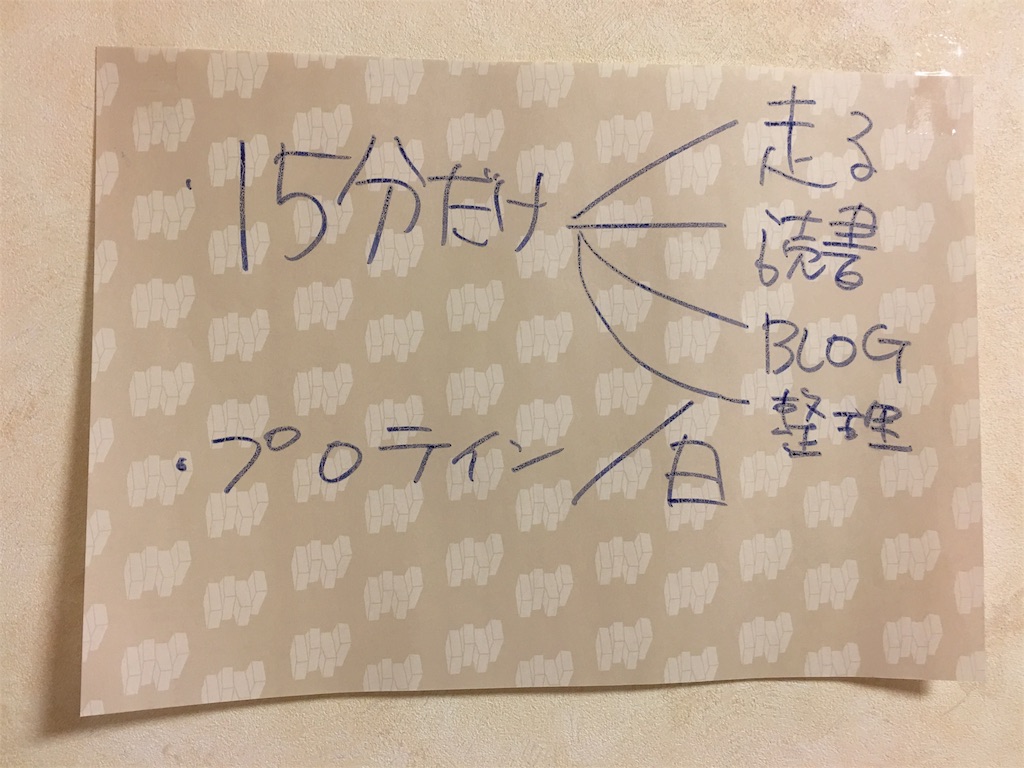 ・15分だけ
走る
読書
BLOG
整理
・プロテイン/日